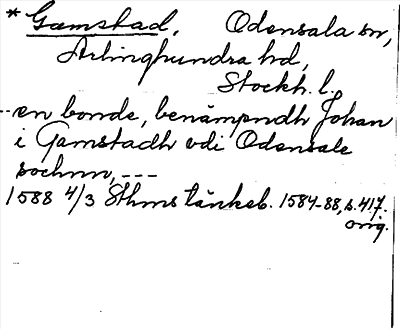 * Gamstad, Odensala sn,
Ärlinghundra hd,
Stockh. l.
--en bonde, benämpndh Johan
i Gamstadh vdi Odensale
sochnn, ---
1588 4/3 Sthms tänkeb. 1584-88, s. 417.
orig.